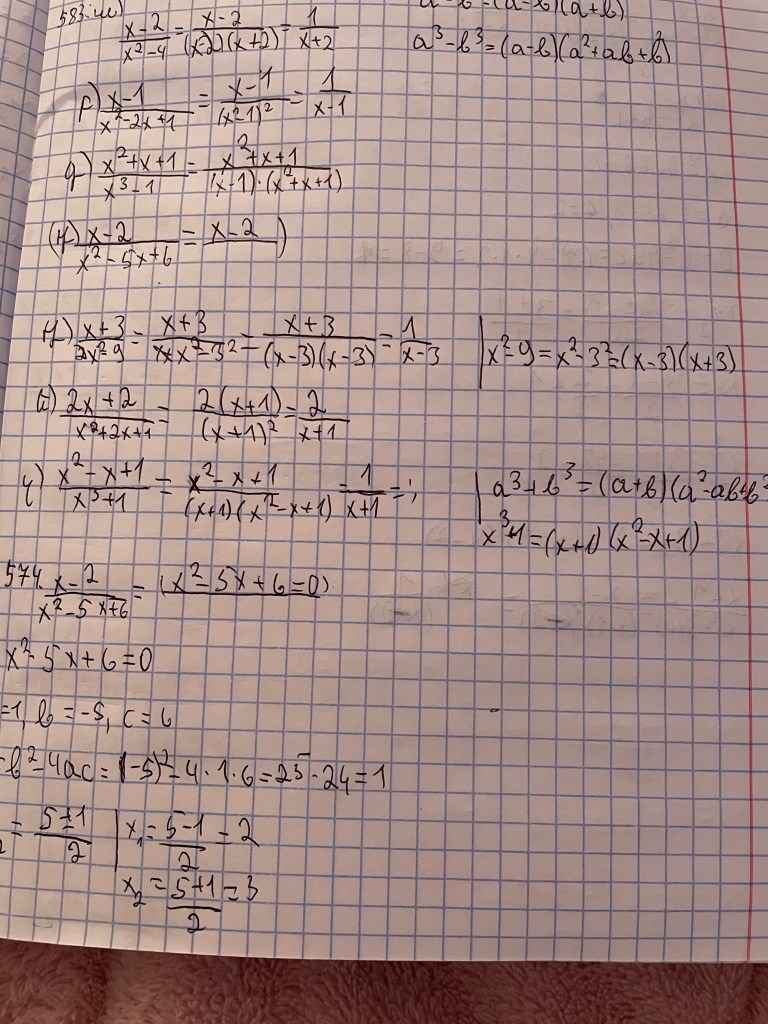 583.
a³-b³=(a-b)(a²+ab+b²)
(x-2)/(x²-4)=(x-2)/((x-2)(x+2))=1/(x+2)
(x-1)/(x²-2x+1)=(x-1)/((x-1)²)=1/(x-1)
g) (x²+x+1)/(x³-1)=(x²+x+1)/((x-1)·(x²+x+1))
(x-2)/(x²-5x+6)=(x-2)/ )
(x+3)/(x²-9)=(x+3)/(x²-3²)=(x+3)/((x-3)(x-3))=1/(x-3) | x²-9=x²-3²=(x-3)(x+3)
(2x+2)/(x²+2x+1)=2(x+1)/(x+1)²=2/(x+1)
(x²-x+1)/(x³+1)=(x²-x+1)/((x+1)(x²-x+1))=1/(x+1)=; | a³+b³=(a+b)(a²-ab+b²
x³+1=(x+1)(x²-x+1)
574. (x-2)/(x²-5x+6)=(x²-5x+6=0)
x²-5x+6=0
=1, b=-5, c=6
=b²-4ac=(-5)²-4·1·6=25-24=1
=(5±1)/2 | x₁=(5-1)/2=2
x₂=(5+1)/2=3